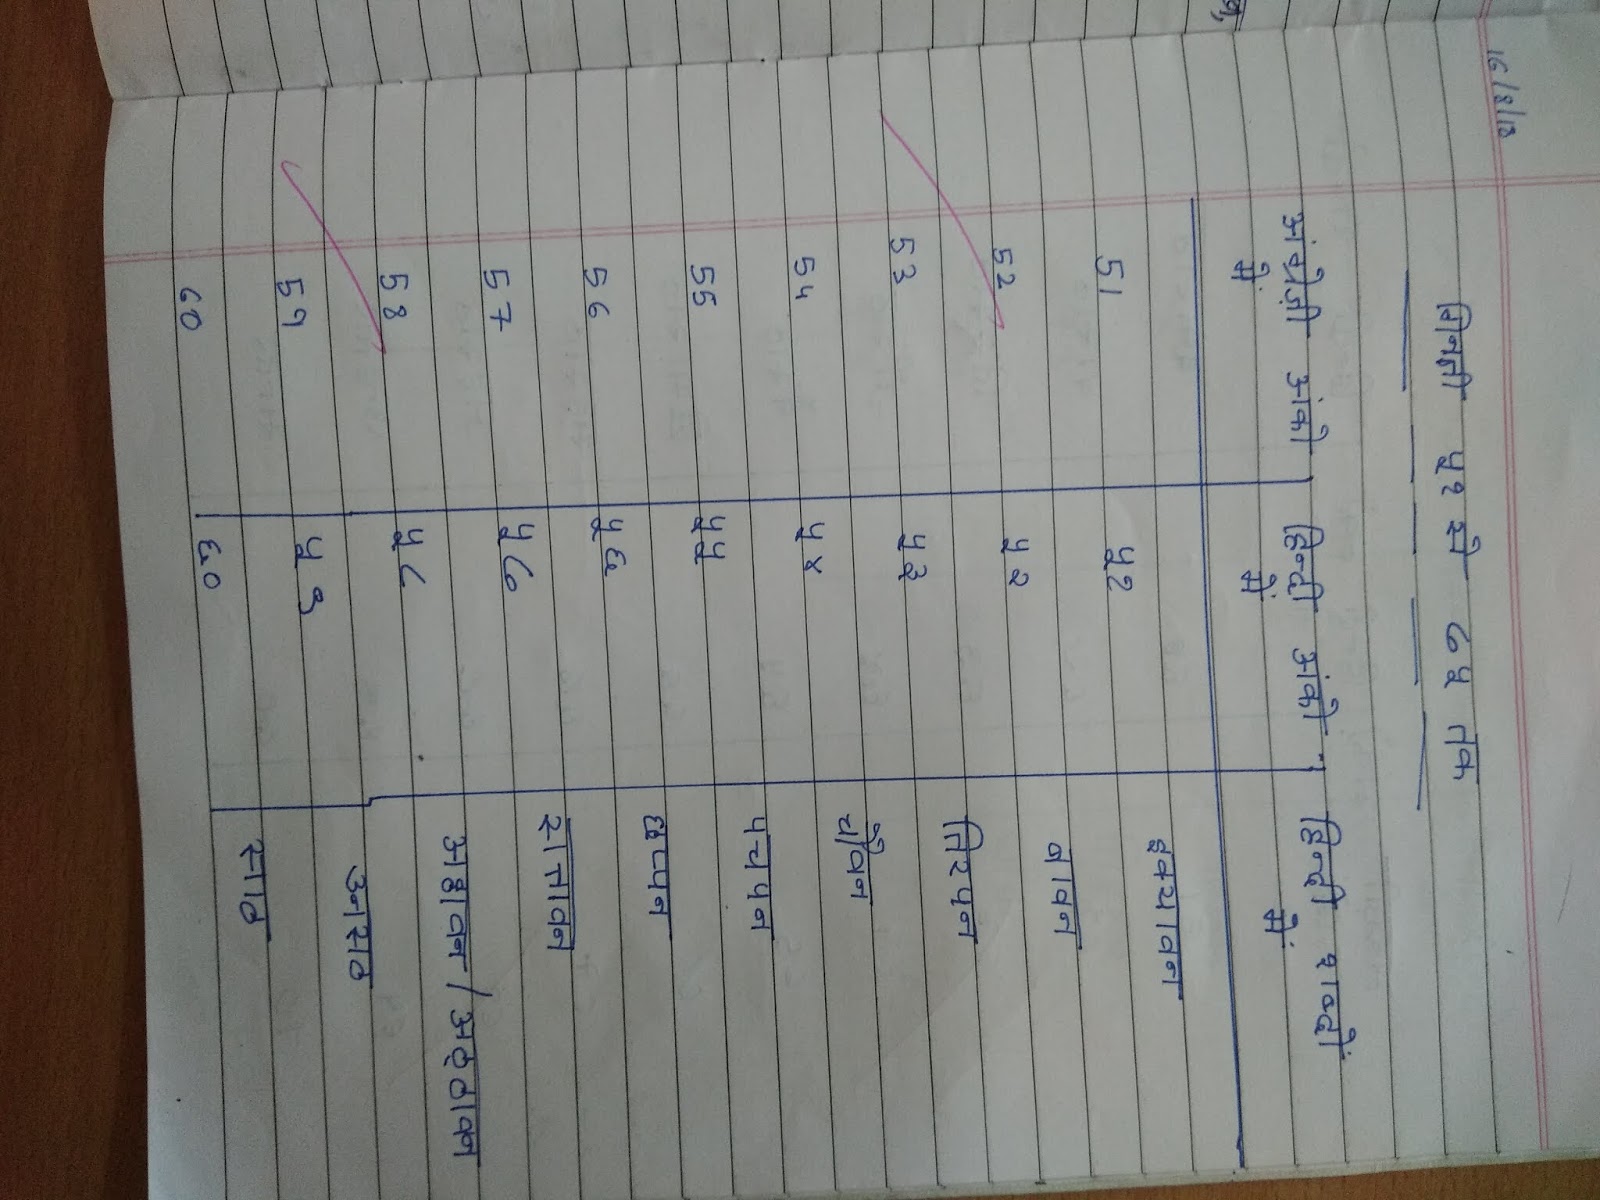 16/8/18
गिनती ५१ से ७५ तक
अंग्रेज़ी अंको हिन्दी अंको हिन्दी शब्दों
में में में
51 ५१ इक्यावन
52 ५२ बावन
53 ५३ तिरपन
54 ५४ चौवन
55 ५५ पचपन
56 ५६ छप्पन
57 ५७ सत्तावन
58 ५८ अट्ठावन / अठ्ठावन
59 ५९ उनसठ
60 ६० साठ